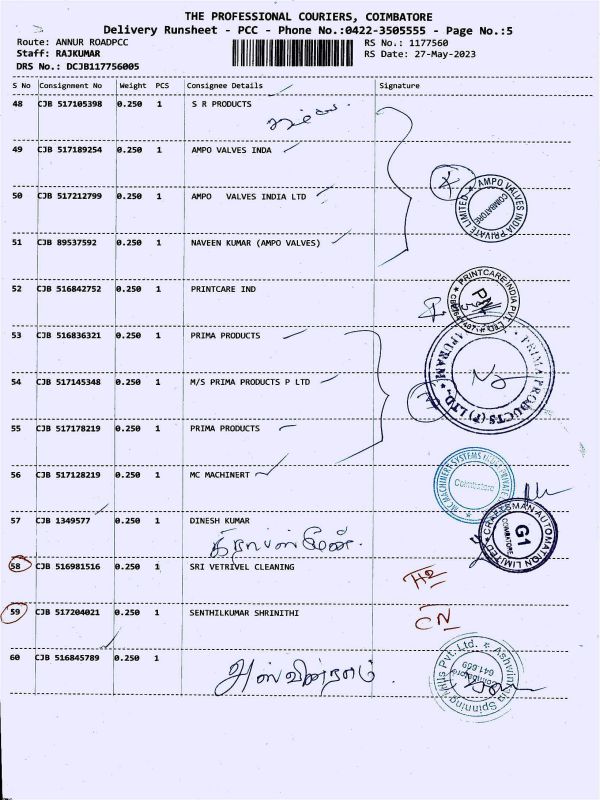 THE PROFESSIONAL COURIERS, COIMBATORE
Delivery Runsheet - PCC - Phone No.:0422-3505555 - Page No.:5
Route: ANNUR ROADPCC RS No.: 1177560
Staff: RAJKUMAR RS Date: 27-May-2023
DRS No.: DCJB117756005
S No Consignment No Weight PCS Consignee Details Signature
48 CJB 517105398 0.250 1 S R PRODUCTS
49 CJB 517189254 0.250 1 AMPO VALVES INDA
50 CJB 517212799 0.250 1 AMPO VALVES INDIA LTD
AMPO VALVES INDIA PRIVATE LIMITED
COIMBATORE
51 CJB 89537592 0.250 1 NAVEEN KUMAR (AMPO VALVES)
52 CJB 516842752 0.250 1 PRINTCARE IND
PRINTCARE INDIA PVT LTD
53 CJB 516836321 0.250 1 PRIMA PRODUCTS
54 CJB 517145348 0.250 1 M/S PRIMA PRODUCTS P LTD
PRIMA PRODUCTS (P) LTD.,
55 CJB 517178219 0.250 1 PRIMA PRODUCTS
56 CJB 517128219 0.250 1 MC MACHINERT
MC MACHINERY SYSTEMS
Coimbatore
57 CJB 1349577 0.250 1 DINESH KUMAR
CRAFTSMAN AUTOMATION LIMITED
G1
COIMBATORE
58 CJB 516981516 0.250 1 SRI VETRIVEL CLEANING
59 CJB 517204021 0.250 1 SENTHILKUMAR SHRINITHI
CN
60 CJB 516845789 0.250 1
Spinning Mills Pvt. Ltd.
Coimbatore